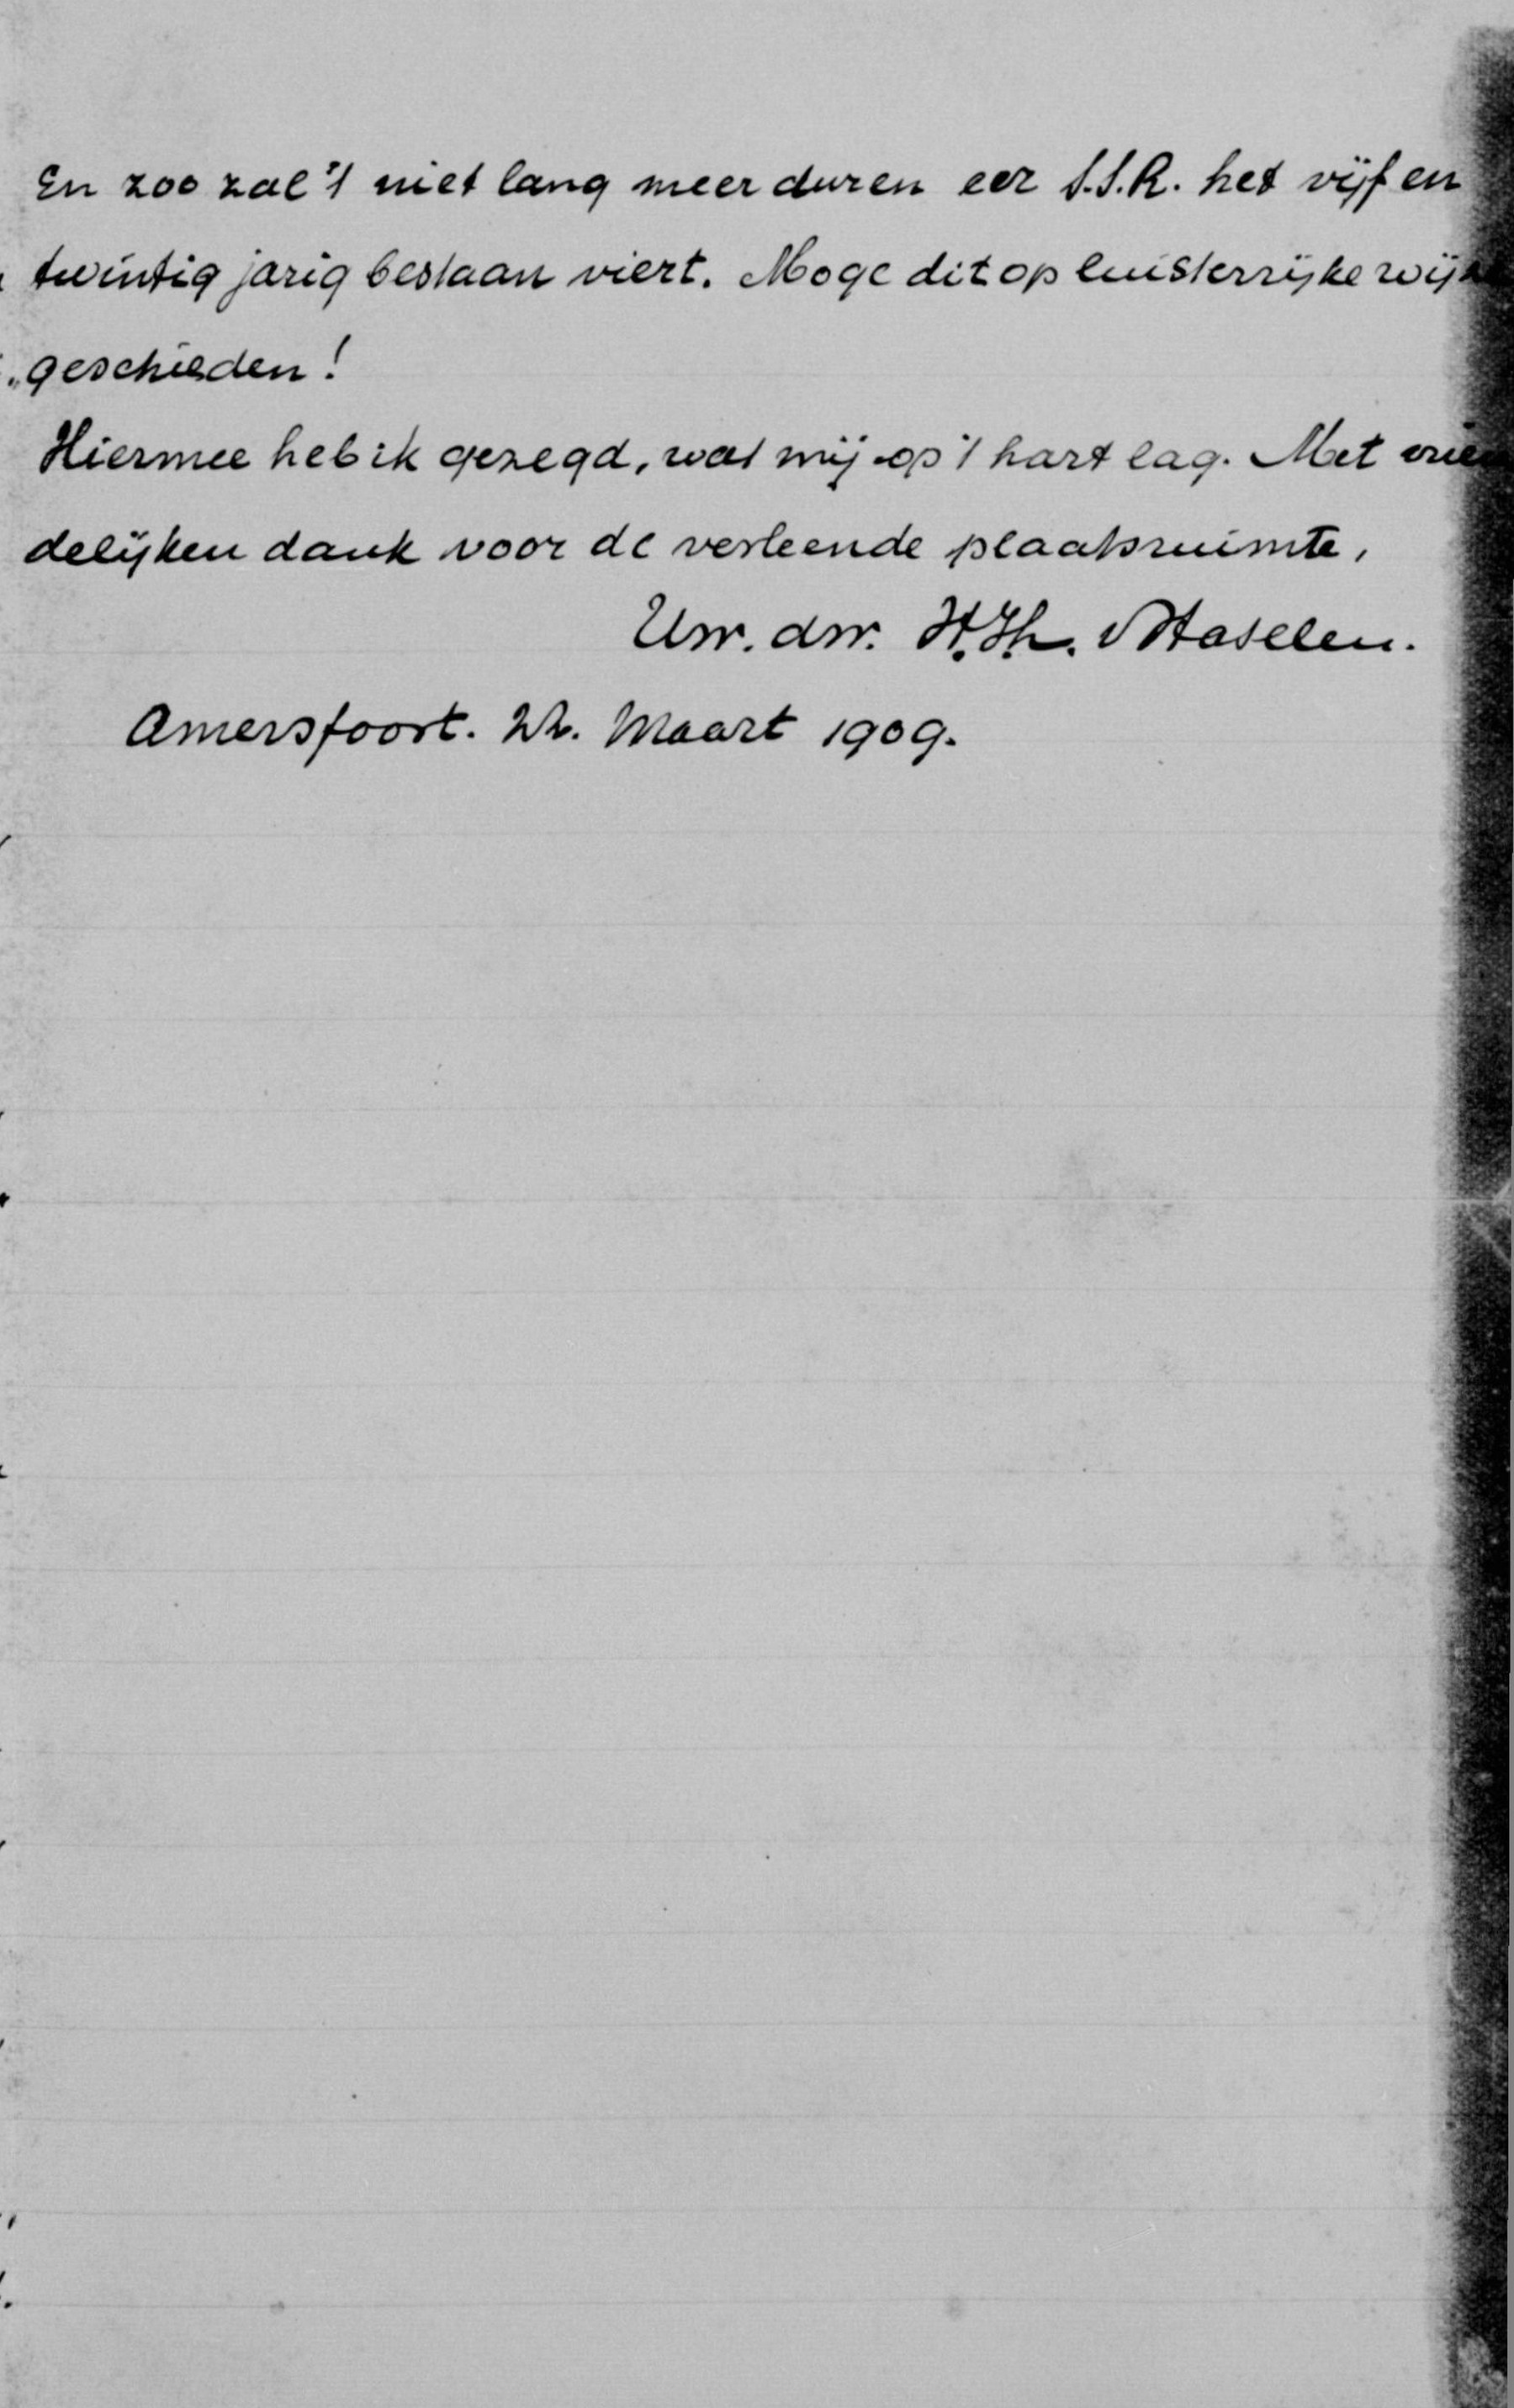 En zoo zal 't niet lang meer duren eer S.S.R. het vijf en
twintig jarig bestaan viert. Moge dit op luisterrijke
geschieden!
Hiermee heb ik gezegd, wat mij op 't hart lag. Met vrien
delijken dank voor de verleende plaatsruimte,
Uw. dw. H.Th. v Haselen.
Amersfoort. Maart 1909.